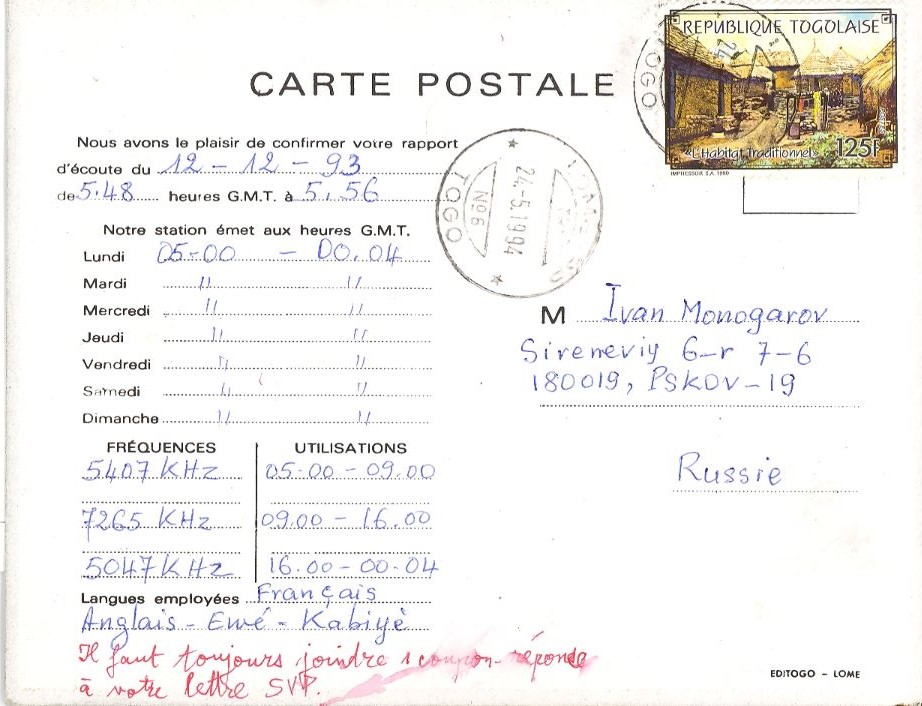 REPUBLIQUE TOGOLAISE
«L'Habitat Traditionnel»
125F
IMPRESSOR S.A. 1990
TOGO
CARTE POSTALE
Nous avons le plaisir de confirmer votre rapport
d'écoute du 12 - 12 - 93
de 5.48 heures G.M.T. à 5.56
24.-5.1994
No6
TOGO
Notre station émet aux heures G.M.T.
Lundi 05-00 - 00.04
Mardi " "
Mercredi " "
Jeudi " "
Vendredi " "
Samedi " "
Dimanche " "
M Ivan Monogarov
Sireneviy 6-r 7-6
180019, PSKOV-19
Russie
FRÉQUENCES UTILISATIONS
5407 KHz 05-00 - 09.00
7265 KHz 09.00 - 16.00
5047 KHz 16.00 - 00-04
Langues employées Français
Anglais - Ewé - Kabiyè
Il faut toujours joindre 1 coupon-réponse
à votre lettre SVP.
EDITOGO - LOME